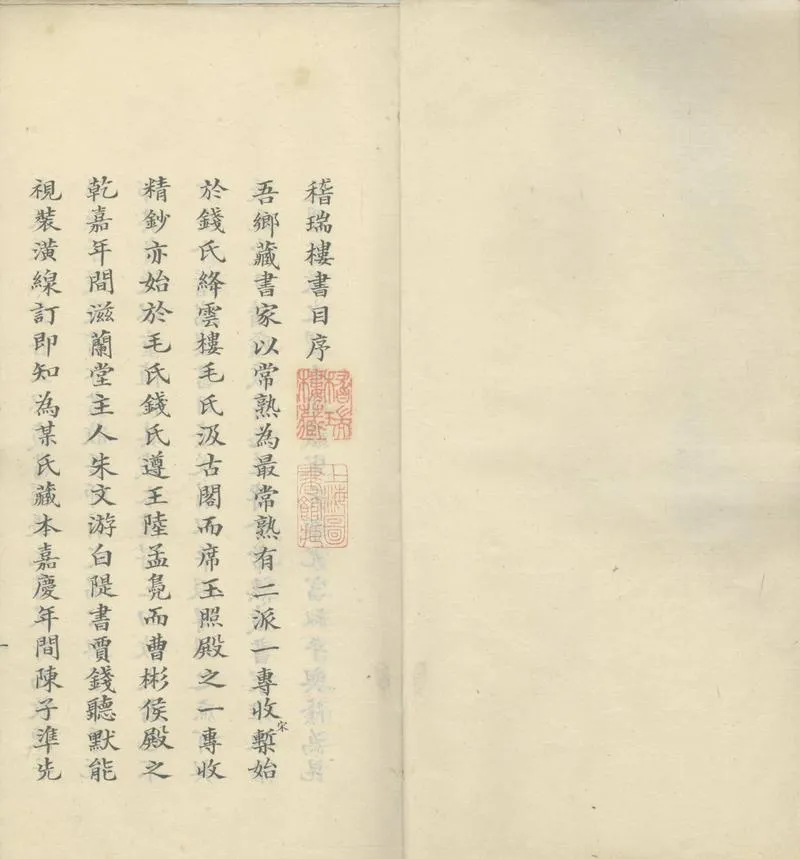 稽瑞樓書目序
稽瑞樓藏
上海圖書館藏
吾鄉藏書家以常熟為最常熟有二派一專收宋槧始
於錢氏絳雲樓毛氏汲古閣而席玉照殿之一專收
精鈔亦始於毛氏錢氏遵王陸孟鳧而曹彬侯殿之
乾嘉年間滋蘭堂主人朱文游白隄書賈錢聽默能
視裝潢線訂即知為某氏藏本嘉慶年間陳子準先